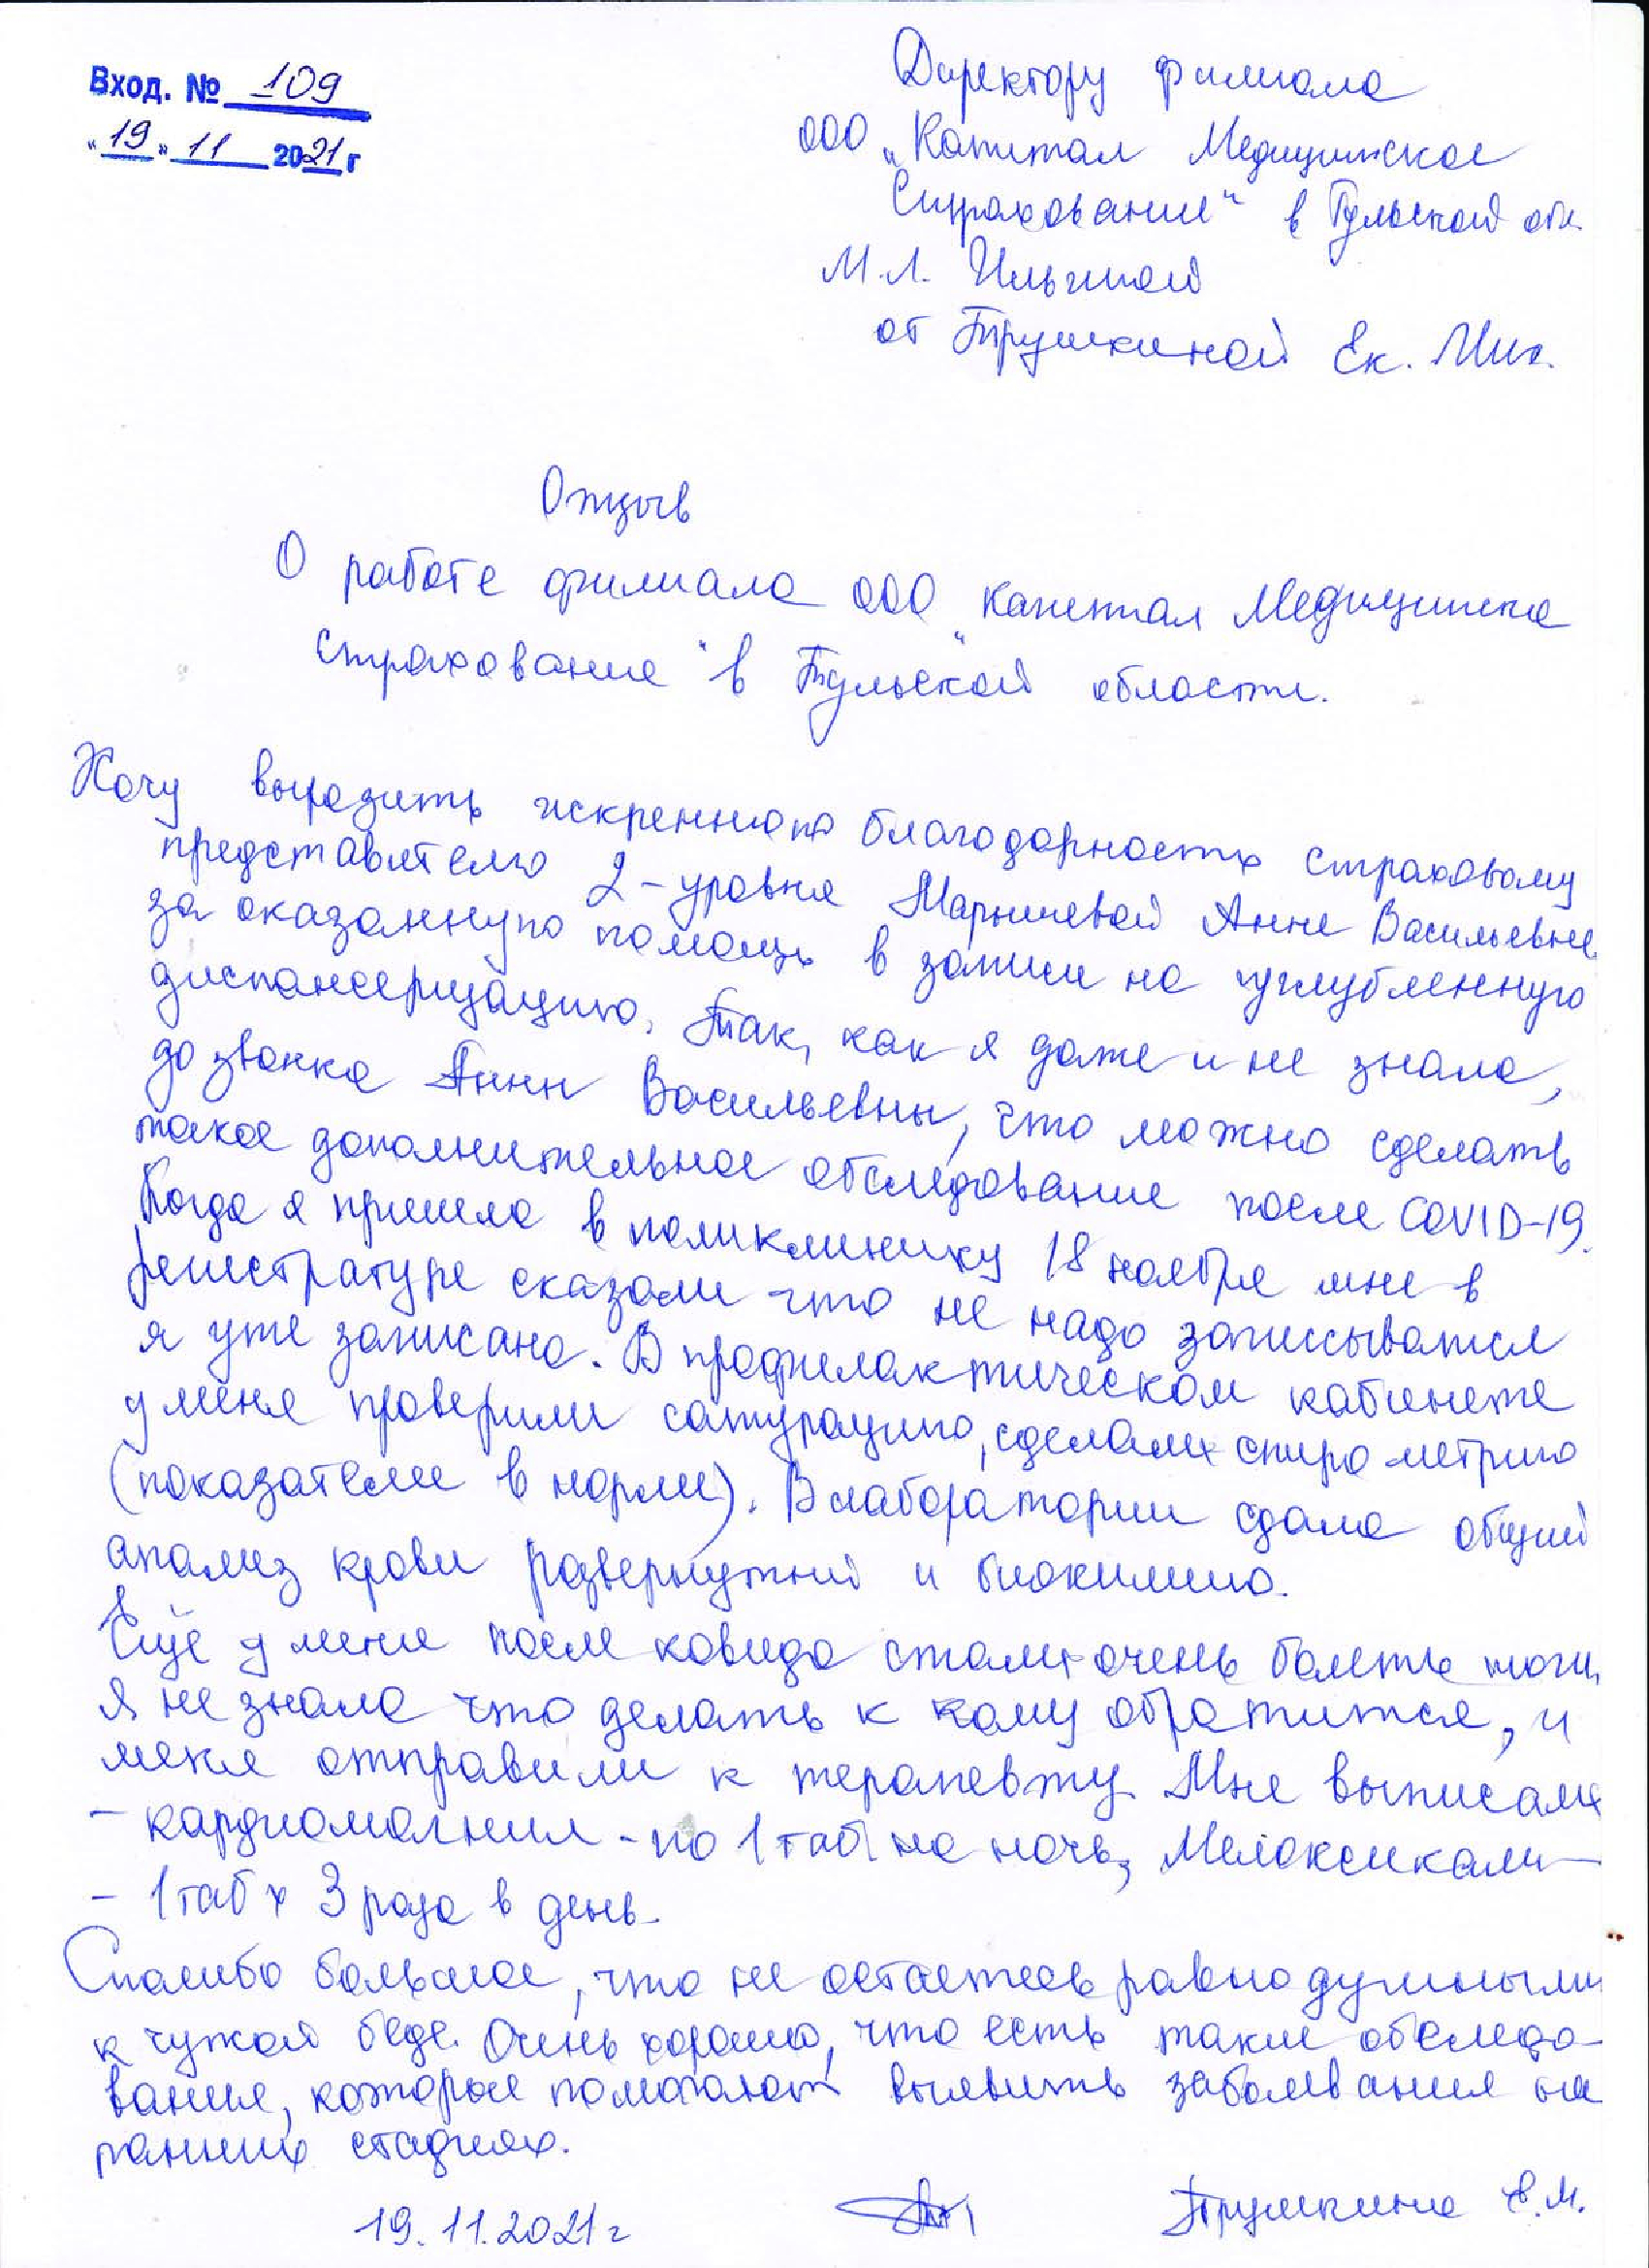 Вход. № 109
"19" 11 2021 г
Директору филиала
ООО "Капитал Медицинское
Страхование" в Тульской обл.
М.Л. Ильиной
от Трушкиной Ек. Мих.
Отзыв
О работе филиала ООО "Капитал Медицинско
Страхование" в Тульской области.
Хочу выразить искреннюю благодарность страховому
представителю 2-уровня Марышевой Анне Васильевне
за оказанную помощь в записи на углубленную
диспансеризацию. Так, как я даже и не знала,
до звонка Анны Васильевны, что можно сделать
такое дополнительное обследование после COVID-19.
Когда я пришла в поликлинику 18 ноября мне в
регистратуре сказали что не надо записыватся
я уже записана. В профилактическом кабинете
у меня проверили сатурацию, сделали спирометрию
(показатели в норме). В лаборатории сдала общий
анализ крови развернутый и биохимию.
Ещё у меня после ковида стали очень болеть ноги,
я не знала что делать к кому обратится, и
меня отправили к терапевту. Мне выписали
- кардиомагнил - по 1 таб на ночь, Мелоксикам -
- 1 таб х 3 раза в день.
Спасибо большое, что не остаетесь равнодушными
к чужой беде. Очень хорошо, что есть такие обследо-
вания, которые помогают выявить заболевания на
ранних стадиях.
19.11.2021 г Трушкина Е.М.